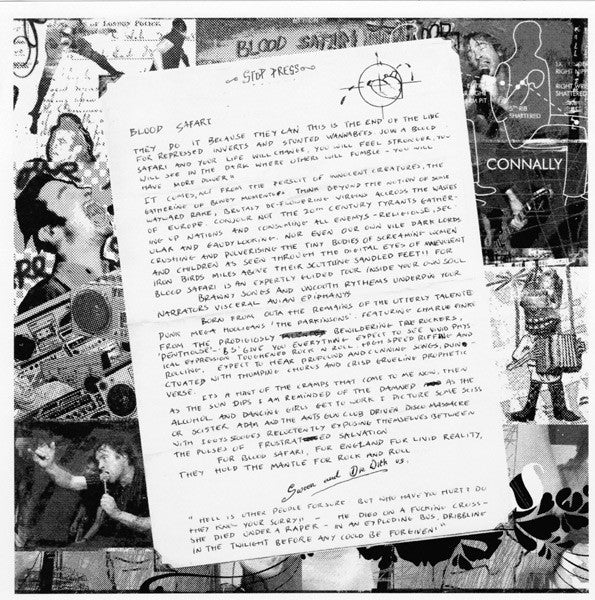 OF LONDON POLICE.
BLOOD SAFARI
STOP PRESS
BLOOD SAFARI
THEY DO IT BECAUSE THEY CAN THIS IS THE END OF THE LINE
FOR REPRESSED INVERTS AND STUNTED WANNABEES JOIN A BLOOD
SAFARI AND YOUR LIFE WILL CHANGE. YOU WILL FEEL STRONGER, YOU
WILL SEE IN THE DARK WHERE OTHERS WILL FUMBLE - YOU WILL
HAVE MORE POWER"
IT COMES, NOT FROM THE PERSUIT OF INNOCENT CREATURES, THE
GATHERING OF BLOODY MOMENTOES. THINK BEYOND THE NOTION OF SOME
WAYWARD RAKE, BRUTALY DE-FLOWERING VIRGINS ACCROSS THE WAVES
OF EUROPE. CONJOUR NOT THE 20TH CENTURY TYRANTS GATHER-
ING UP NATIONS AND CONSUMING ALL ENEMYS - RELIGIOUSE, SEC-
ULAR AND GAUDY LOOKING. NOR EVEN OUR OWN VILE DARK LORDS
CRUSHING AND PULVERISING THE TINY BODIES OF SCREAMING WOMEN
AND CHILDREN AS SEEN THROUGH THE DIGITAL EYES OF MALEVOLENT
IRON BIRDS MILES ABOVE THEIR SCUTTLING SANDLED FEET!! FOR
BLOOD SAFARI IS AN EXPERTLY GUIDED TOUR INSIDE YOUR OWN SOUL
BRAWNY SOUNDS AND UNCOUTH RYTHEMS UNDERPIN YOUR
NARRATORS VISCERAL AVIAN EPIPHANYS
BORN FROM OUTA THE REMAINS OF THE UTTERLY TALENTED
PUNK MEGA HOOLIGANS 'THE PARKINSONS'. FEATURING CHARLIE FINKE
FROM THE PRODIGIOSLY BEWILDERING TRUE ROCKERS,
'PENTHOUSE'. B.S' GIVE YOU EVERYTHING EXPECT TO SEE VIVID PHYS
ICAL EXPRESSION TOUGHENED ROCK N ROLL. HIGH SPEED RIFFING AND
ROLLING. EXPECT TO HEAR PROFOUND AND CUNNING SONGS, PUNC-
CTUATED WITH THUMPING CHORUS AND CRISP GRUELING PROPHETIC
VERSE.
ITS A HINT OF THE CRAMPS THAT COME TO ME NOW, THEN
AS THE SUN DIPS I AM REMINDED OF THE DAMNED AS THE
ALCOHOL AND DANCING GIRLS GET TO WORK I PICTURE SOME SCISS
OR SCISTER ADAM AND THE ANTS GUN CLUB DRIVEN DISCO MASSACRE
WITH IGGYS STOOGES RELUCTENTLY EXPOSING THEMSELVES BETWEEN
THE PULSES OF FRUSTRATED SALVATION
FOR BLOOD SAFARI, FOR ENGLAND FOR LIVID REALITY,
THEY HOLD THE MANTLE FOR ROCK AND ROLL
and Dr. Dick
"HELL IS OTHER PEOPLE FOR SURE BUT WHO HAVE YOU HURT? DO
THEY KNOW YOUR SORRY!! - HE DIED ON A FUCKING CROSS -
SHE DIED UNDER A RAPER - IN AN EXPLODING BUS, DRIBBLING
IN THE TWILIGHT BEFORE ANY COULD BE FORGIVEN."
RIGHT
5TH RIB
SHATTERED
RIGHT
SHATTERED
CONNALLY